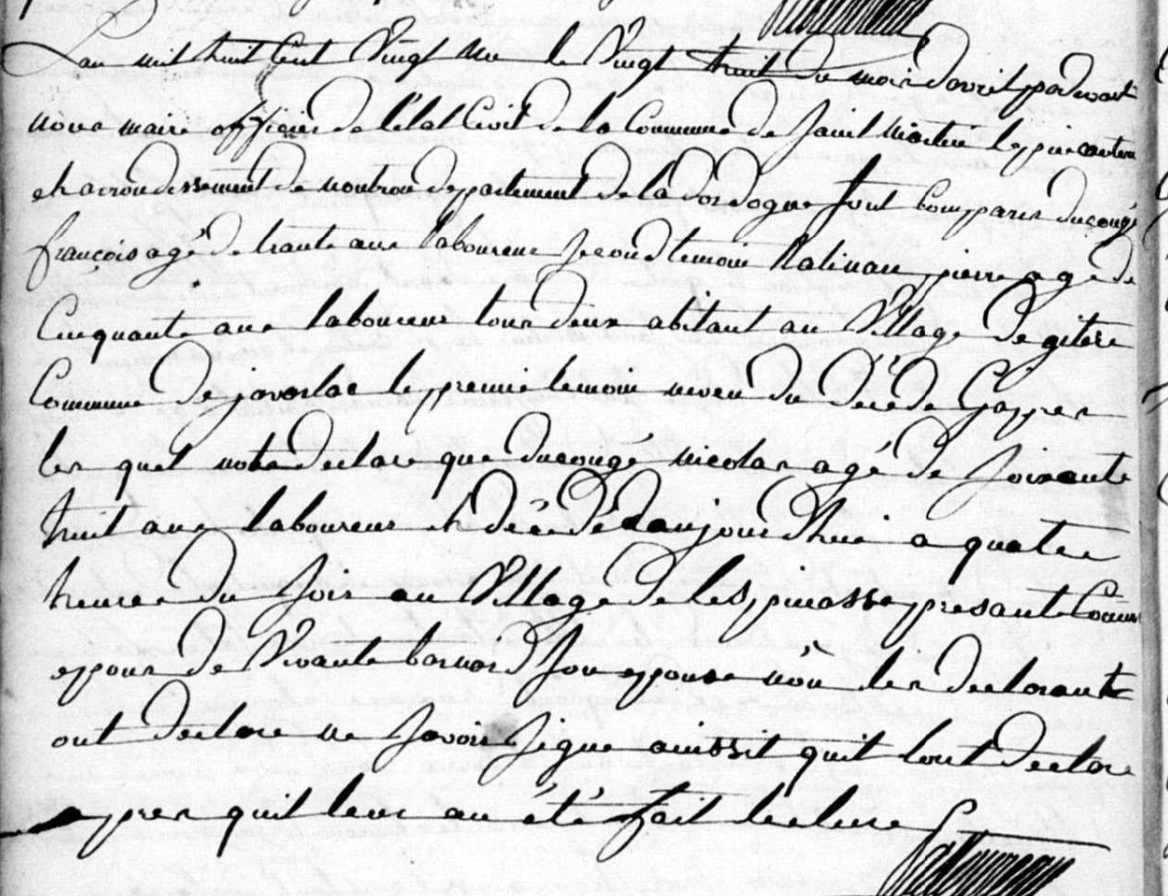 Lan mil huit Cent Vingt un le Vingt huit du mois davril pardevant
nous maire officier de letat Civil de la Commune de saint Martin le pin canton
et arrondissement de nontron departement de la dordogne sont Comparus ducongé
françois agé de trante ans laboureur second temoin Ratinau pierre agé de
Cinquante ans laboureur tous deux abitant au Village de gitere
Commune de javerlac le premie temoin neveu du décédé Gapres
les quel nous declare que ducongé nicolas agé de soixante
huit ans laboureur et décédé daujourdhui a quatre
heures du soir au Village de les pinasse presante Commune
epoux de Vivante bernard son epouse les declarants
ont declare ne savoir signe ainssit quil lont declare
apres quil leur au été fait lecture